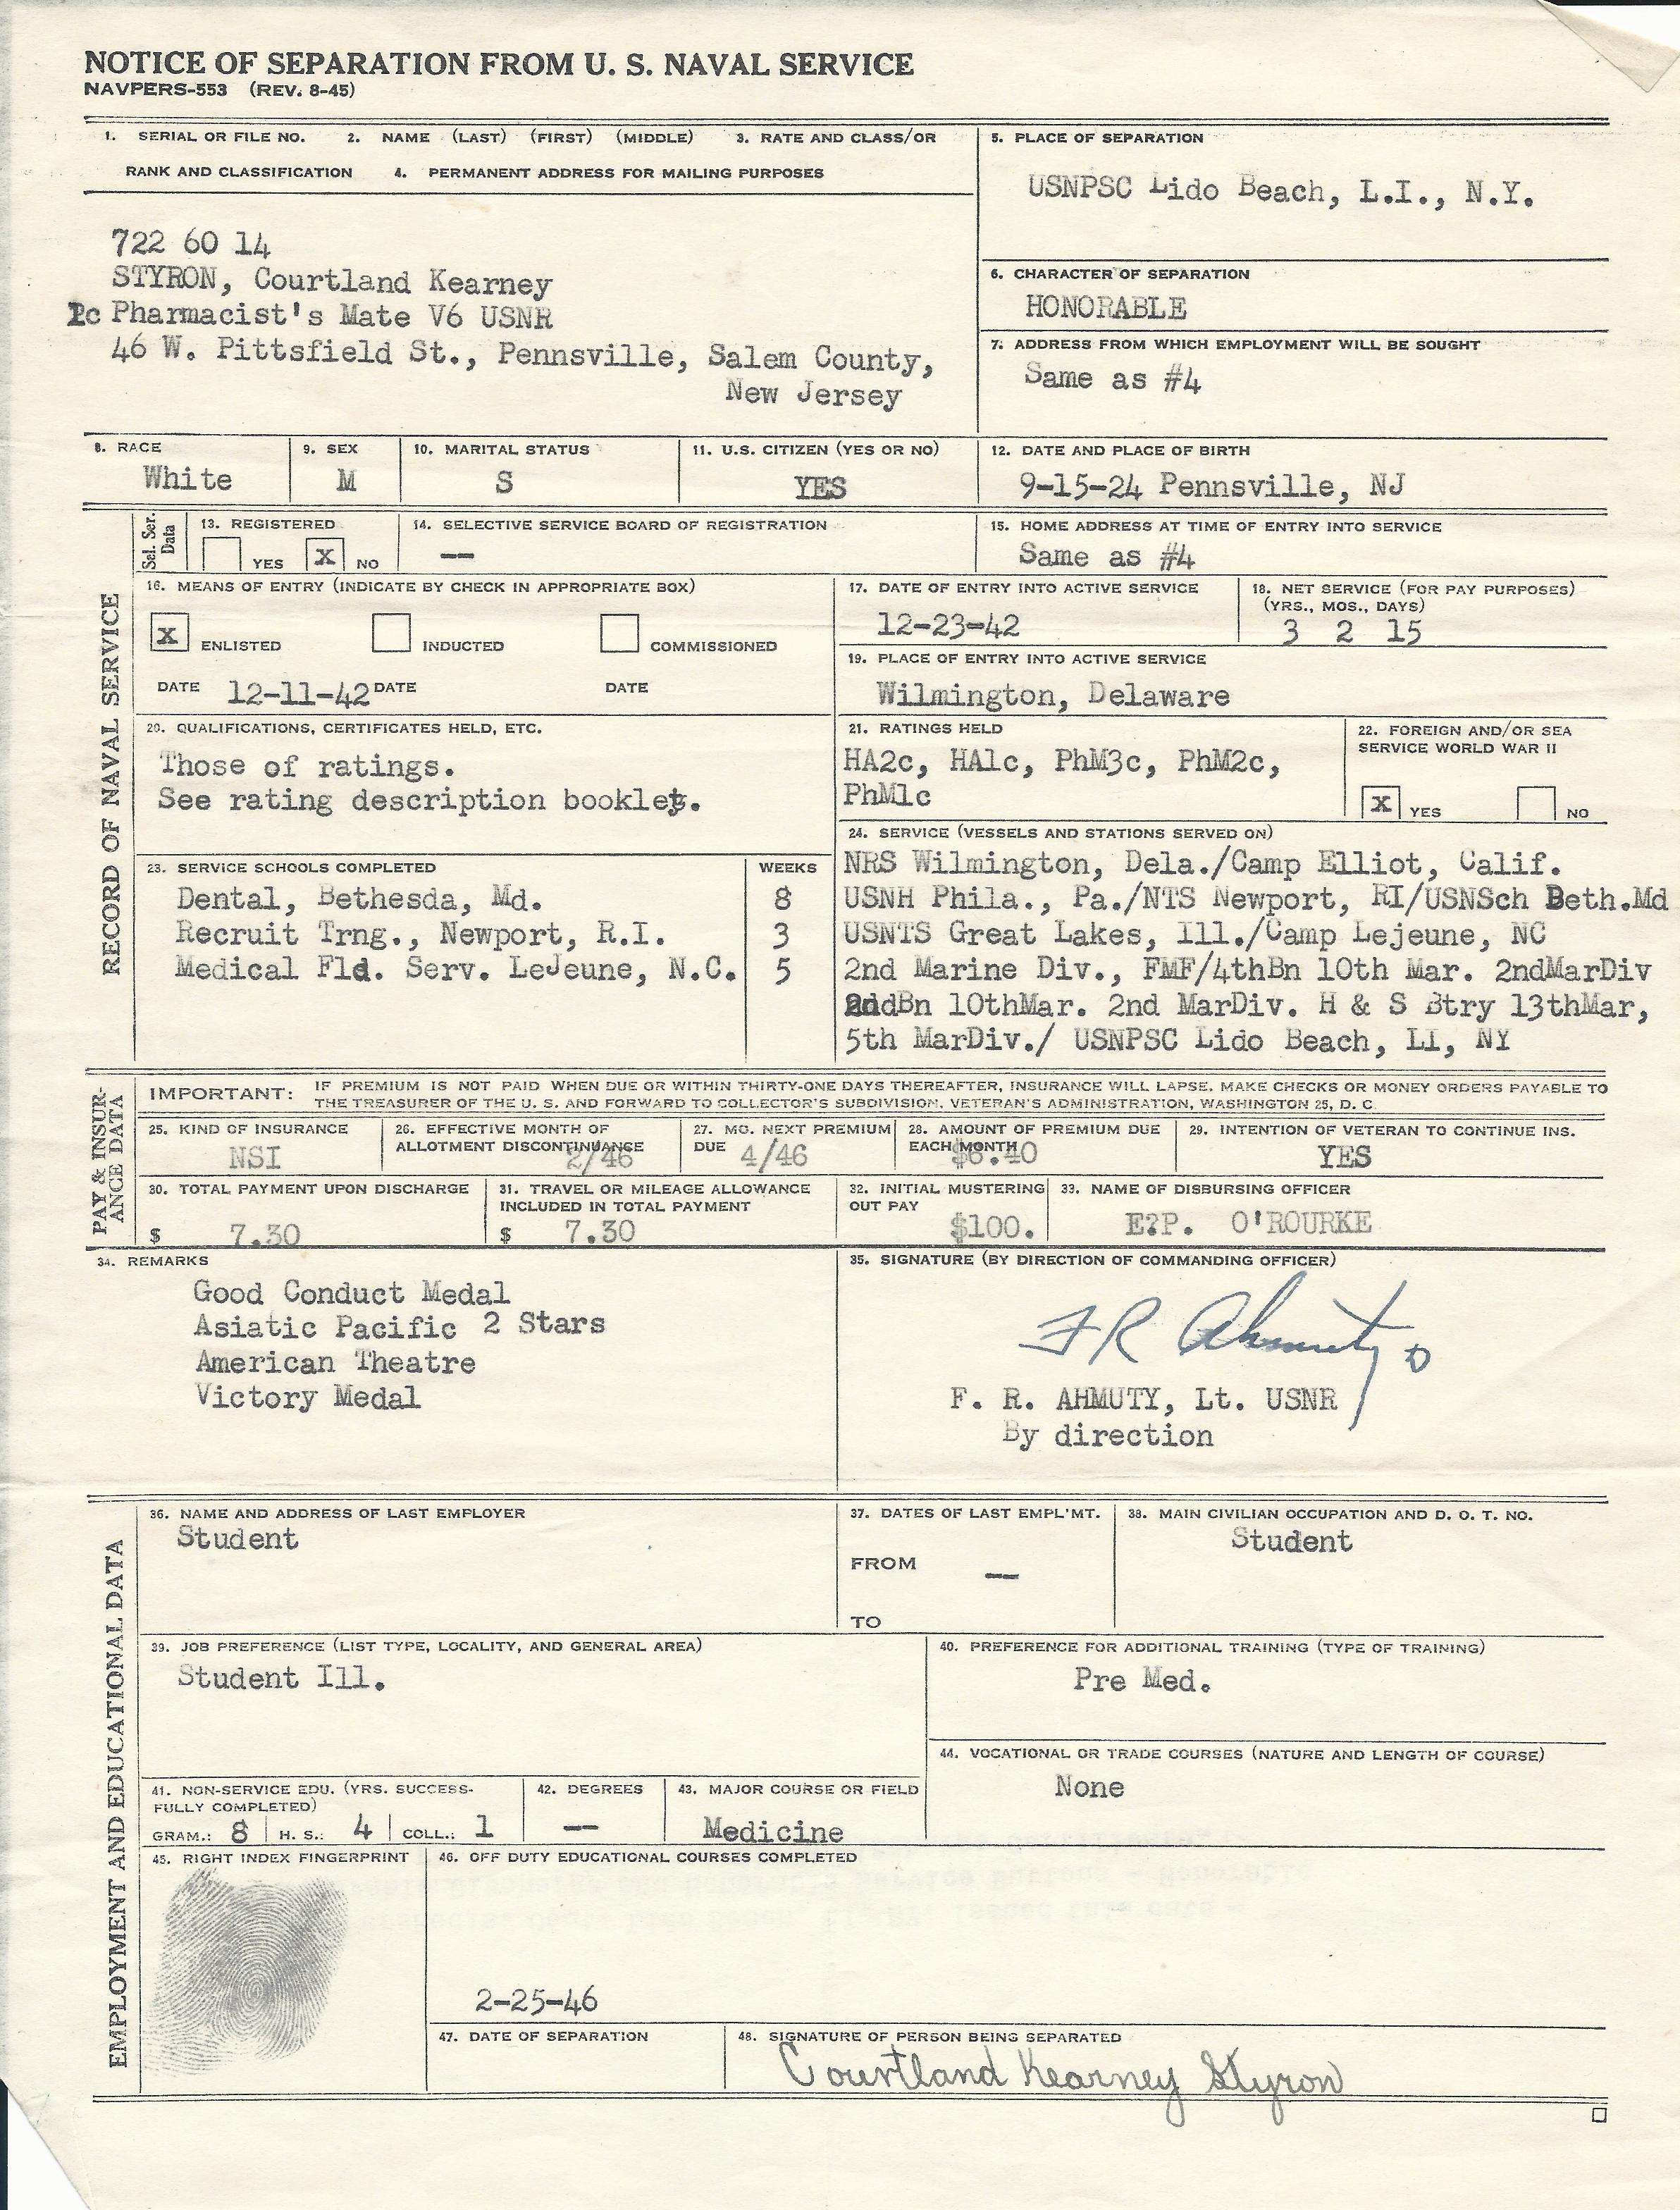 NOTICE OF SEPARATION FROM U. S. NAVAL SERVICE
NAVPERS-553 (REV. 8-45)
1. SERIAL OR FILE NO. 2. NAME (LAST) (FIRST) (MIDDLE) 3. RATE AND CLASS/OR
RANK AND CLASSIFICATION 4. PERMANENT ADDRESS FOR MAILING PURPOSES
722 60 14
STYRON, Courtland Kearney
1c Pharmacist's Mate V6 USNR
46 W. Pittsfield St., Pennsville, Salem County,
New Jersey
5. PLACE OF SEPARATION
USNPSC Lido Beach, L.I., N.Y.
6. CHARACTER OF SEPARATION
HONORABLE
7. ADDRESS FROM WHICH EMPLOYMENT WILL BE SOUGHT
Same as #4
8. RACE
White
9. SEX
M
10. MARITAL STATUS
S
11. U.S. CITIZEN (YES OR NO)
YES
12. DATE AND PLACE OF BIRTH
9-15-24 Pennsville, NJ
Sel. Ser.
Data
13. REGISTERED
YES X NO
14. SELECTIVE SERVICE BOARD OF REGISTRATION
--
15. HOME ADDRESS AT TIME OF ENTRY INTO SERVICE
Same as #4
RECORD OF NAVAL SERVICE
16. MEANS OF ENTRY (INDICATE BY CHECK IN APPROPRIATE BOX)
X ENLISTED INDUCTED COMMISSIONED
DATE 12-11-42 DATE DATE
17. DATE OF ENTRY INTO ACTIVE SERVICE
12-23-42
18. NET SERVICE (FOR PAY PURPOSES)
(YRS., MOS., DAYS)
3 2 15
19. PLACE OF ENTRY INTO ACTIVE SERVICE
Wilmington, Delaware
20. QUALIFICATIONS, CERTIFICATES HELD, ETC.
Those of ratings.
See rating description booklet.
21. RATINGS HELD
HA2c, HA1c, PhM3c, PhM2c,
PhM1c
22. FOREIGN AND/OR SEA
SERVICE WORLD WAR II
X YES NO
23. SERVICE SCHOOLS COMPLETED WEEKS
Dental, Bethesda, Md. 8
Recruit Trng., Newport, R.I. 3
Medical Fld. Serv. LeJeune, N.C. 5
24. SERVICE (VESSELS AND STATIONS SERVED ON)
NRS Wilmington, Dela./Camp Elliot, Calif.
USNH Phila., Pa./NTS Newport, RI/USNSch Beth.Md
USNTS Great Lakes, Ill./Camp Lejeune, NC
2nd Marine Div., FMF/4thBn 10th Mar. 2ndMarDiv
2ndBn 10thMar. 2nd MarDiv. H & S Btry 13thMar,
5th MarDiv./ USNPSC Lido Beach, LI, NY
PAY & INSUR-
ANCE DATA
IMPORTANT: IF PREMIUM IS NOT PAID WHEN DUE OR WITHIN THIRTY-ONE DAYS THEREAFTER, INSURANCE WILL LAPSE. MAKE CHECKS OR MONEY ORDERS PAYABLE TO
THE TREASURER OF THE U. S. AND FORWARD TO COLLECTOR'S SUBDIVISION, VETERAN'S ADMINISTRATION, WASHINGTON 25, D. C.
25. KIND OF INSURANCE
NSI
26. EFFECTIVE MONTH OF
ALLOTMENT DISCONTINUANCE
2/46
27. MO. NEXT PREMIUM
DUE 4/46
28. AMOUNT OF PREMIUM DUE
EACH MONTH
$6.40
29. INTENTION OF VETERAN TO CONTINUE INS.
YES
30. TOTAL PAYMENT UPON DISCHARGE
$ 7.30
31. TRAVEL OR MILEAGE ALLOWANCE
INCLUDED IN TOTAL PAYMENT
$ 7.30
32. INITIAL MUSTERING
OUT PAY
$100.
33. NAME OF DISBURSING OFFICER
E?P. O'ROURKE
34. REMARKS
Good Conduct Medal
Asiatic Pacific 2 Stars
American Theatre
Victory Medal
35. SIGNATURE (BY DIRECTION OF COMMANDING OFFICER)
F R Ahmuty
F. R. AHMUTY, Lt. USNR
By direction
EMPLOYMENT AND EDUCATIONAL DATA
36. NAME AND ADDRESS OF LAST EMPLOYER
Student
37. DATES OF LAST EMPL'MT.
FROM
--
TO
38. MAIN CIVILIAN OCCUPATION AND D. O. T. NO.
Student
39. JOB PREFERENCE (LIST TYPE, LOCALITY, AND GENERAL AREA)
Student Ill.
40. PREFERENCE FOR ADDITIONAL TRAINING (TYPE OF TRAINING)
Pre Med.
41. NON-SERVICE EDU. (YRS. SUCCESS-
FULLY COMPLETED)
GRAM.: 8 H. S.: 4 COLL.: 1
42. DEGREES
--
43. MAJOR COURSE OR FIELD
Medicine
44. VOCATIONAL OR TRADE COURSES (NATURE AND LENGTH OF COURSE)
None
45. RIGHT INDEX FINGERPRINT
46. OFF DUTY EDUCATIONAL COURSES COMPLETED
2-25-46
47. DATE OF SEPARATION
48. SIGNATURE OF PERSON BEING SEPARATED
Courtland Kearney Styron